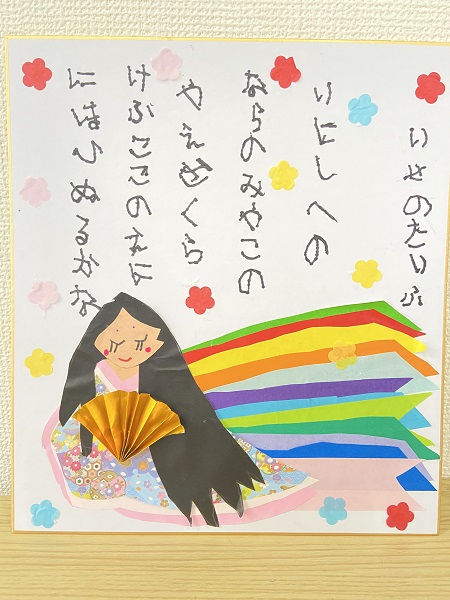 いせのたいふ
いにしへの
ならのみやこの
やえざくら
けふここのえに
にほひぬるかな